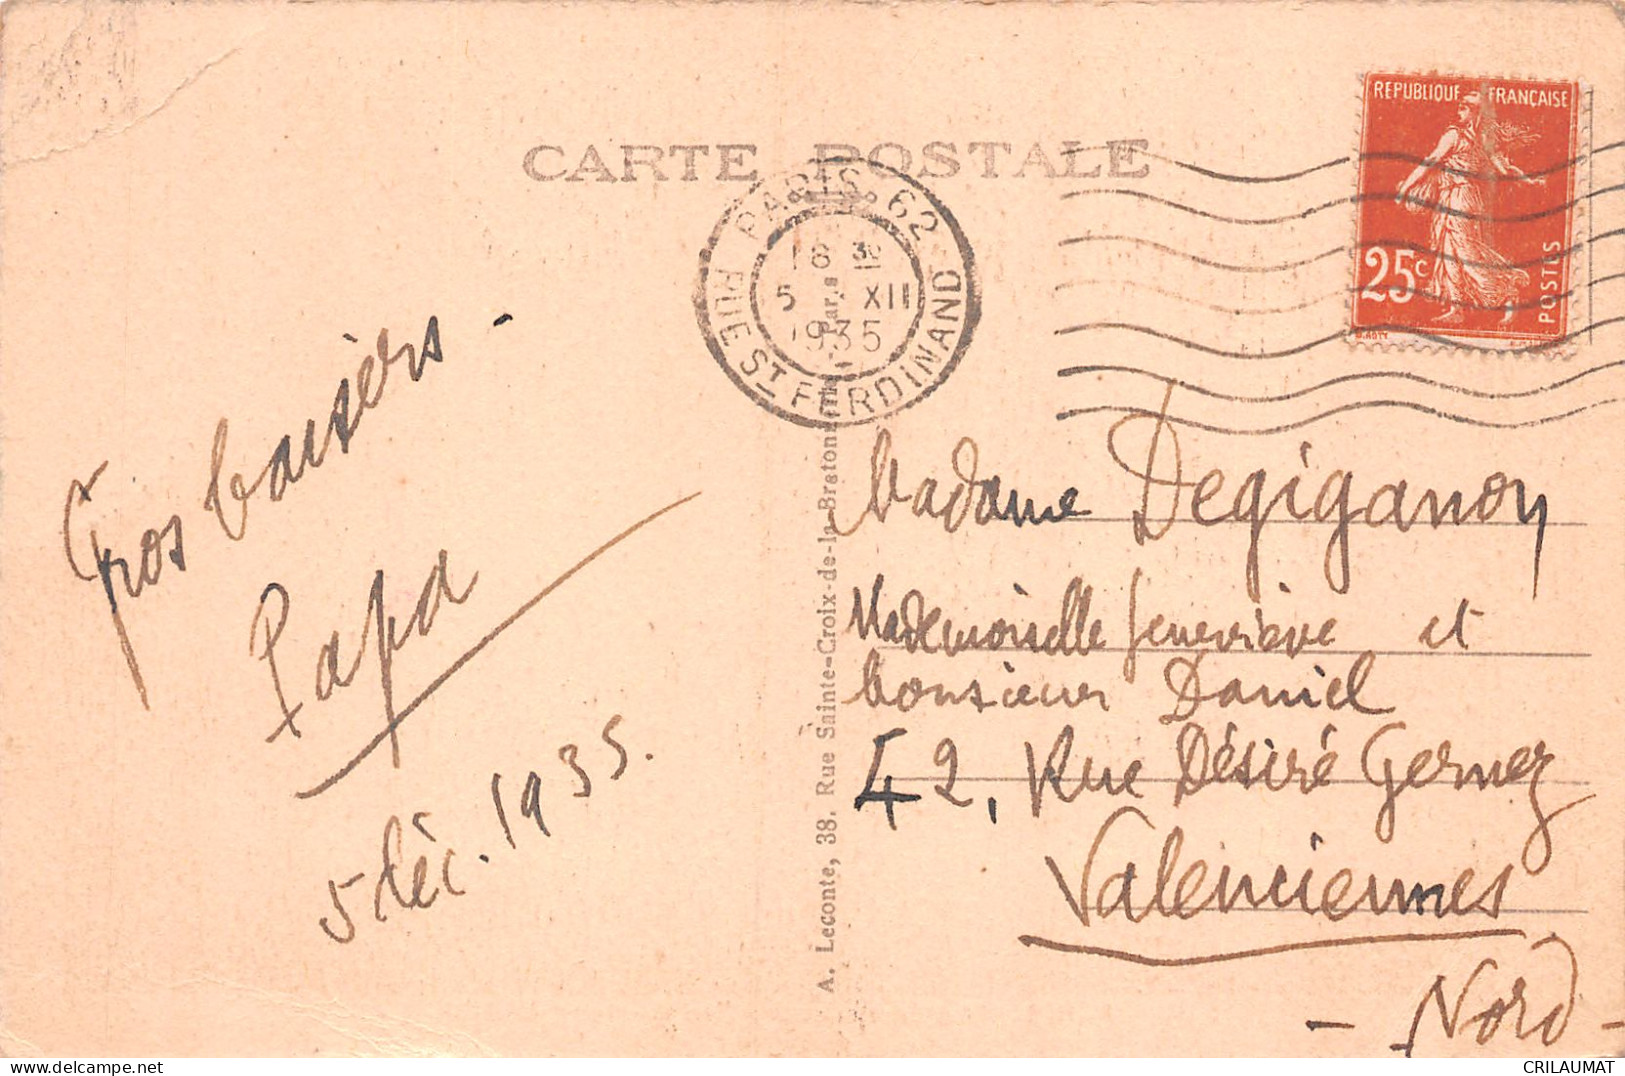 CARTE POSTALE
REPUBLIQUE FRANÇAISE
25c
POSTES
PARIS 62
18 30
5 XII
1935
RUE ST FERDINAND
Gros baisers.
Papa
5 déc. 1935.
A. Leconte, 38, Rue Sainte-Croix-de-la-Bretonnerie, Paris
Madame Degiganon
Mademoiselle Geneviève et
Monsieur Daniel
42, Rue Désiré Gernez
Valenciennes
- Nord -
CRILAUMAT